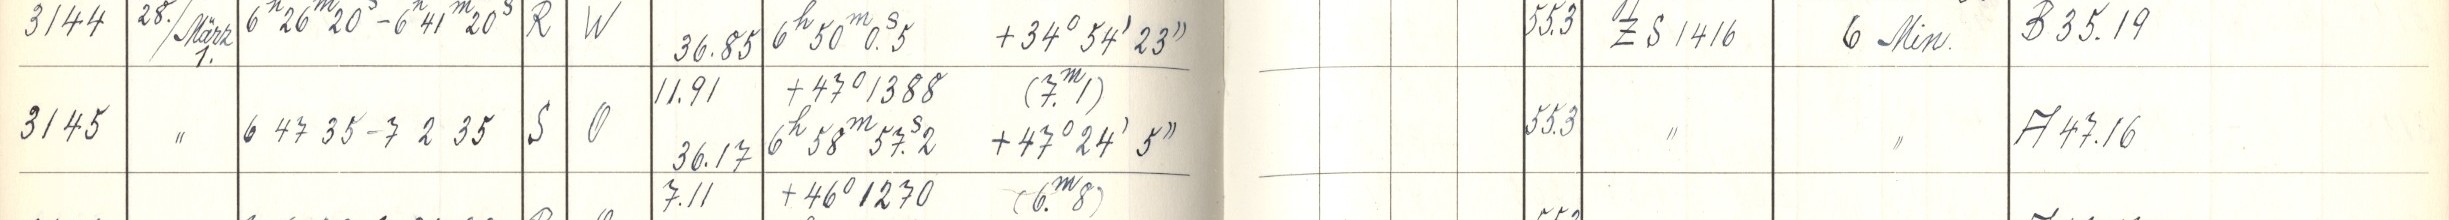 3144 28./März 1. 6h 26m 20s – 6h 41m 20s R W 36.85 6h 50m 0.s5 +34° 54' 23" 55.3 Z S 1416 6 Min. B 35.19
11.91 +47° 1388 (7.m1)
3145 " 6 47 35 – 7 2 35 S O 36.17 6h 58m 57.s2 +47° 24' 5" 55.3 " " A 47.16
7.11 +46° 1270 (6.m8)